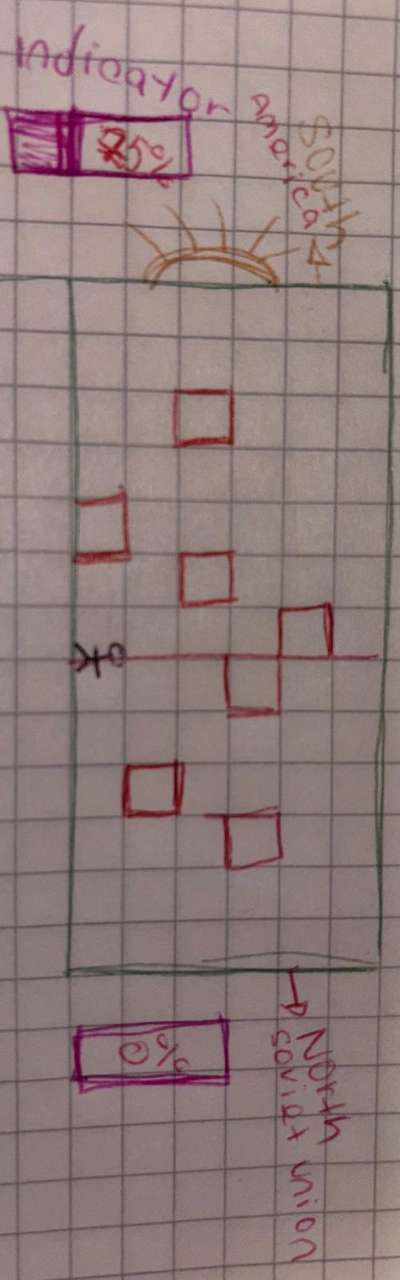 Indicator
25%
South
America
0%
North
soviet union